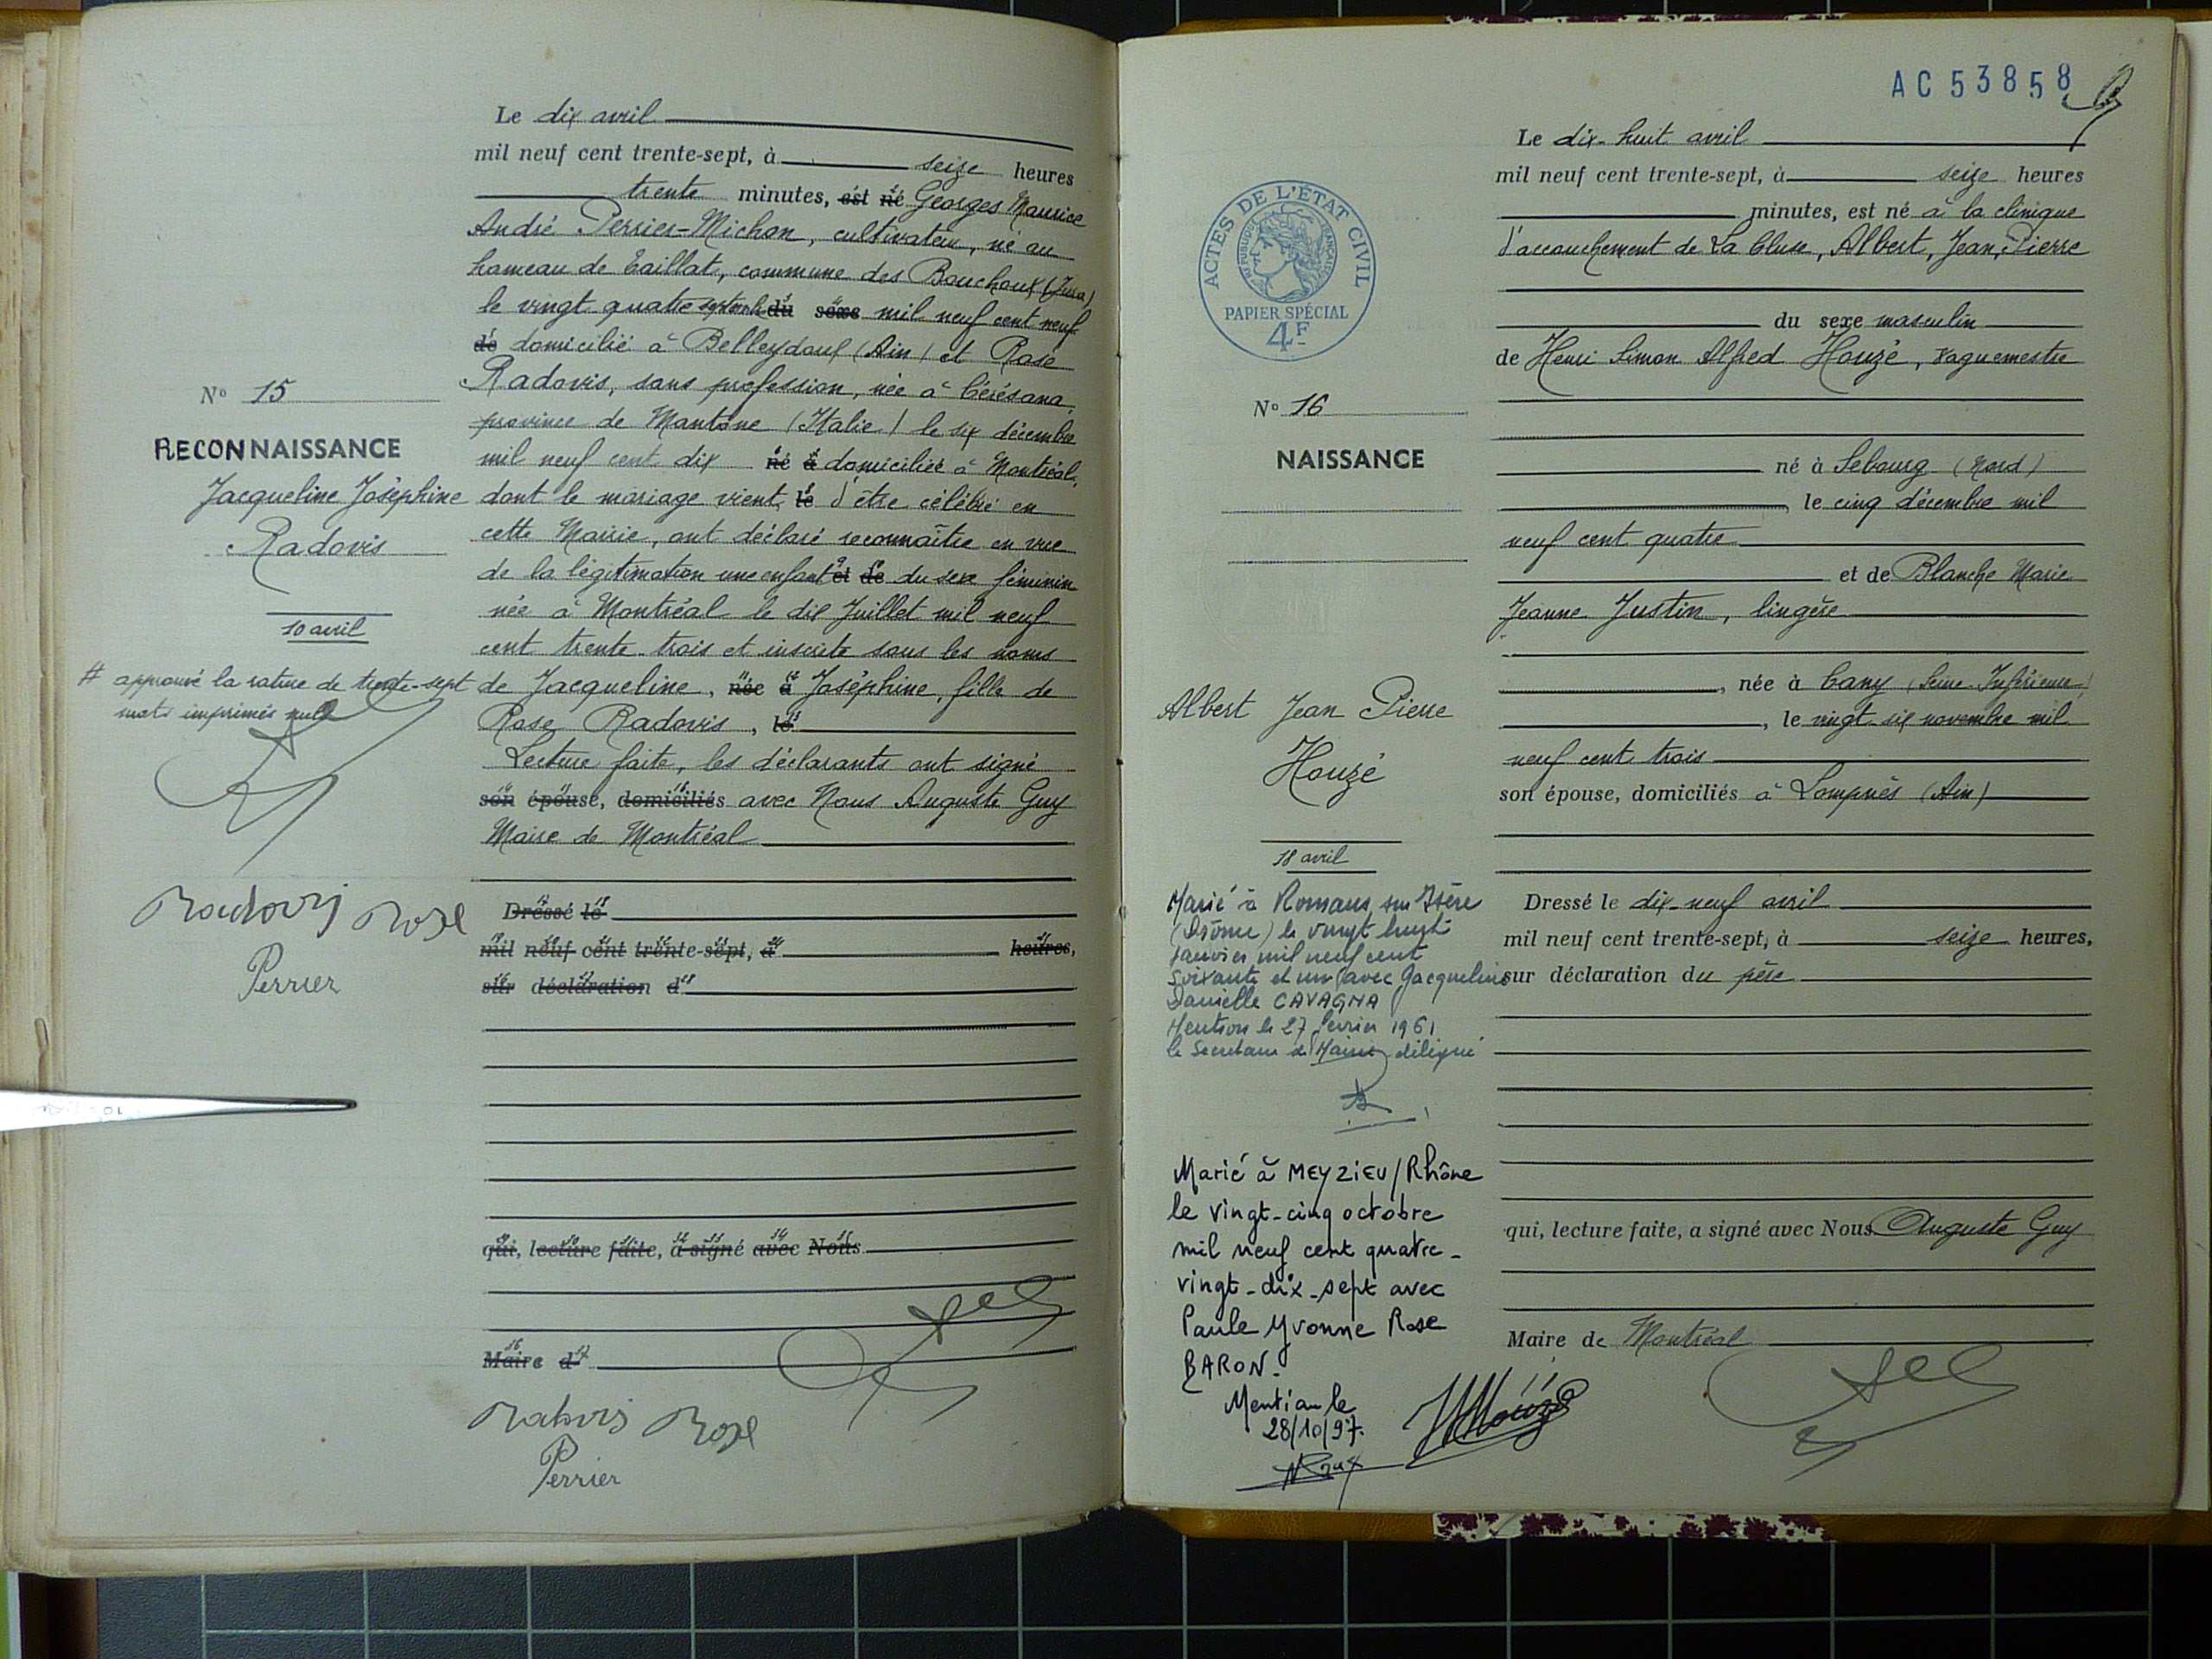 Le dix avril
mil neuf cent trente-sept, à seize heures
trente minutes, est né Georges Maurice
André Perrier-Michon, cultivateur, né au
hameau de Taillat, commune des Bouchoux (Jura)
le vingt quatre septembre du sexe mil neuf cent neuf
de domicilié à Belleydoux (Ain) et Rose
Radovis, sans profession, née à Cérésana,
province de Mantoue (Italie) le six décembre
mil neuf cent dix né à domiciliée à Montréal,
dont le mariage vient, le d'être célébré en
cette Mairie, ont déclaré reconnaître en vue
de la légitimation une enfant et de du sexe féminin
née à Montréal le dix Juillet mil neuf
cent trente-trois et inscrite sous les noms
de Jacqueline, née à Joséphine, fille de
Rose Radovis, le
Lecture faite, les déclarants ont signé
son épouse, domiciliés avec Nous Auguste Guy
Maire de Montréal
Dressé le
mil neuf cent trente-sept, à heures,
sur déclaration d
qui, lecture faite, a signé avec Nous
Maire d
Radovis Rose
Perrier
No 15
RECONNAISSANCE
Jacqueline Joséphine
Radovis
10 avril
# approuvé la rature de trente-sept
mots imprimés nuls
Radovis Rose
Perrier
AC 53858
ACTES DE L'ÉTAT CIVIL
RÉPUBLIQUE FRANÇAISE
PAPIER SPÉCIAL
4F
No 16
NAISSANCE
Albert Jean Pierre
Houzé
18 avril
Marié à Romans sur Isère
(Drôme) le vingt huit
janvier mil neuf cent
soixante et un avec Jacqueline
Danielle CAVAGNA
Mention le 27 février 1961
le Secrétaire de Mairie délégué
Marié à MEYZIEU/Rhône
le vingt-cinq octobre
mil neuf cent quatre-
vingt-dix-sept avec
Paule Yvonne Rose
BARON.
Mention le
28/10/97.
Le dix-huit avril
mil neuf cent trente-sept, à seize heures
minutes, est né à la clinique
d'accouchement de La Cluse, Albert, Jean, Pierre
du sexe masculin
de Henri Simon Alfred Houzé, vaguemestre
né à Sebourg (Nord)
, le cinq décembre mil
neuf cent quatre
et de Blanche Marie
Jeanne Justin, lingère
, née à Cany (Seine-Inférieure)
, le vingt-six novembre mil
neuf cent trois
son épouse, domiciliés à Lompnès (Ain)
Dressé le dix-neuf avril
mil neuf cent trente-sept, à seize heures,
sur déclaration du père
qui, lecture faite, a signé avec Nous Auguste Guy
Maire de Montréal
Houzé